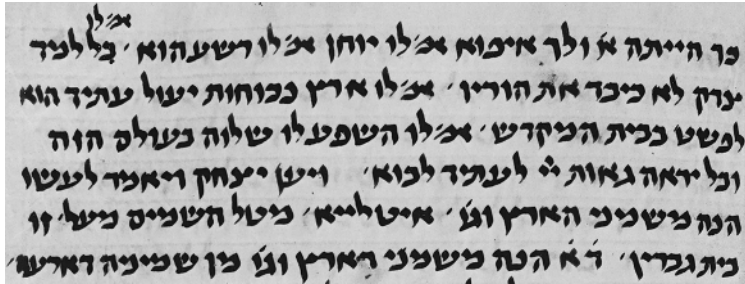 אמ׳ לו
כך הייתה א׳ ולך איפוא אמ׳ לו יוחן אמ׳ לו רשע הוא ׳ בל למד
צדק לא כיבד את הוריו ׳ אמ׳ לו ארץ נכוחות יעול עתיד הוא
לפשט בבית המקדש ׳ אמ׳ לו השפע לו שלוה בעולם הזה
ובל יראה גאות יי׳ לעתיד לבוא ׳ ויען יצחק ויאמר לעשו
הנה משמני הארץ וגו׳ ׳ איטלייא ׳ מטל השמים מעל ׳ זו
בית גברין ׳ ד׳ א׳ הנה משמני הארץ וגו׳ מן שמינה דארעה ׳